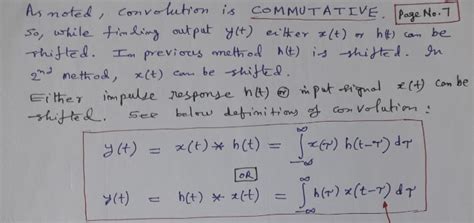 As noted, convolution is COMMUTATIVE. Page No. 7
So, while finding output y(t) either x(t) or h(t) can be
shifted. In previous method h(t) is shifted. In
2nd method, x(t) can be shifted.
Either impulse response h(t) or input signal x(t) can be
shifted. See below definitions of convolution :
y(t) = x(t) * h(t) = ∫_{-∞}^{∞} x(τ) h(t-τ) dτ
OR
y(t) = h(t) * x(t) = ∫_{-∞}^{∞} h(τ) x(t-τ) dτ